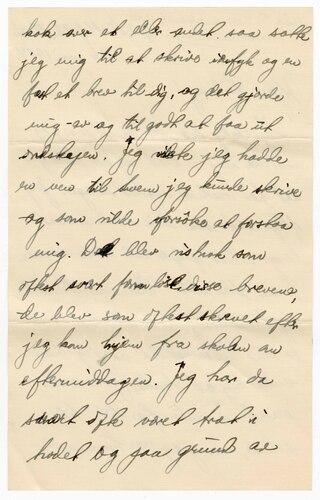 kok over et eller andet saa satte
jeg mig til at skrive og en
fart et brev til dig, og det gjorde
mig og til godt at faa ut
ondskapen. Jeg vilste jeg hadde
en ven til hvem jeg kunde skrive
og som vilde forsöke at forstaa
mig. Det blev nok som
oftest svært disse brevene,
de blev som oftest skrevet efter
jeg kom hjem fra skolen om
eftermiddagen. Jeg har da
svært ofte været træt i
hodet og paa grund av